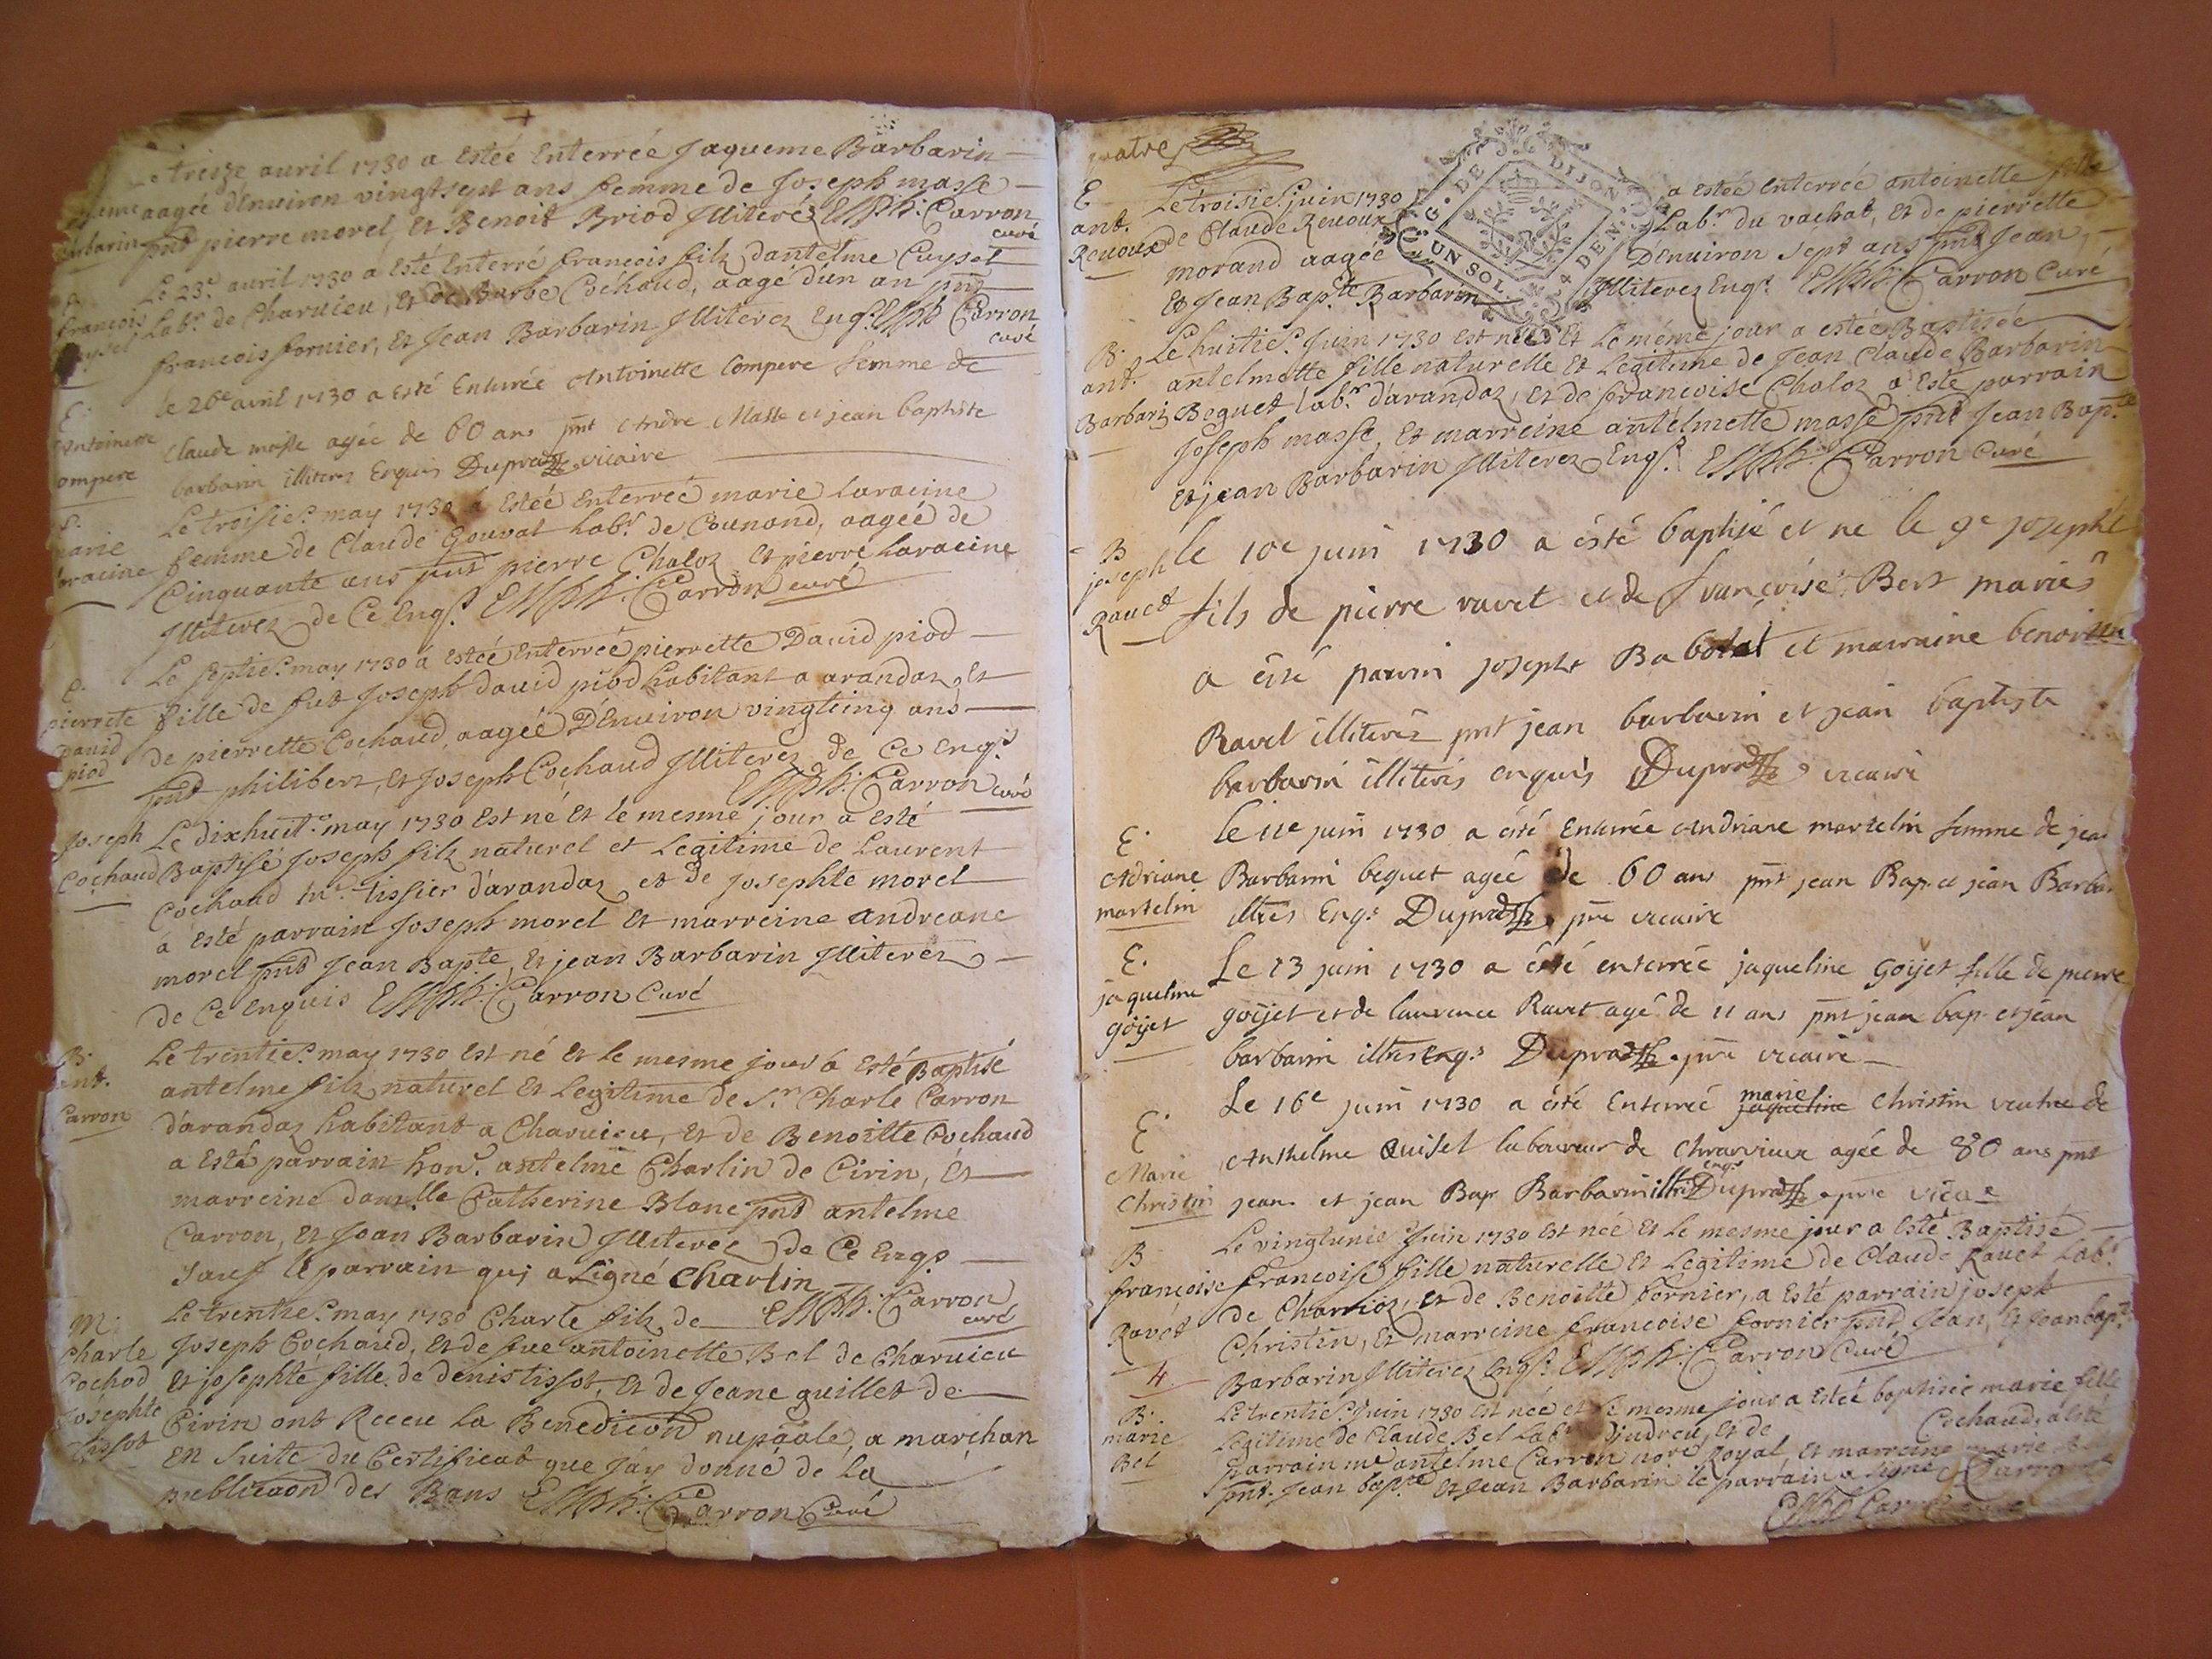 treize auril 1730 a Estée Enterrée Jaqueme Barbarin
aagée d'Enuiron vingtsept ans femme de Joseph masse
Barbarin pnt pierre morel, Et Benoit Briod Illiterés Carron
curé
Le 23e. auril 1730 a Esté Enterré francois filz dantelme Cuyset
francois Labr. de Charuieu, Et de Barbe Cochaud, aagé d'un an pnt
francois fornier, Et Jean Barbarin Illiterez Enqs. Carron
curé
E.
le 26e avril 1730 a esté Enterrée Antoinette Compere femme de
Antoinette Claude masse agée de 60 ans pnt Andre Masse et jean baptiste
ompere barbarin illiteres Enquis Dupraz vicaire
Le troisie. may 1730 a Estéé Enterreé marie Laracine
marie femme de Claude Gouvat Labr. de Counand, aageé de
aracine Cinquante ans pnt pierre Chaloz Et pierre Laracine
Illiterez de Ce Enqs. Carron curé
E.
Le septie. may 1730 a Estéé Enterreé pierrette Dauid piod
pierrete fille de fut Joseph dauid piod habitant a arandaz, Et
Dauid de pierrette Cochaud, aageé D'Enuiron vingtcinq ans
piod pnt philibert, Et Joseph Cochaud Illiterez de Ce Enqs.
Carron curé
Joseph Le dixhuit. may 1730 Est né Et le mesme jour a Esté
Cochaud Baptisé Joseph filz naturel et Legitime de Laurent
Cochaud tissier d'arandaz et de Josephte morel
a Esté parrain Joseph morel Et marreine andreane
morel pnt Jean Bapte. Et jean Barbarin Illiterez
de Ce Enquis Carron Curé
B. Le trentie. may 1730 Est né Et le mesme jour a Esté Baptisé
ant. antelme filz naturel Et Legitime de Sr. Charle Carron
Carron d'arandaz habitant a Charuieu, Et de Benoitte Cochaud
a Esté parrain honr. antelme Charlin de Cirin, Et
marreine damlle Catherine Blanc pnt antelme
Carron, Et Jean Barbarin Illiterez de Ce Enqs
sauf le parrain qui a signé Charlin
M. Le trentie. may 1730 Charle filz de Carron
curé
Charle Joseph Cochaud, Et de fue antoinette Bel de Charuieu
Cochod Et josephte fille de denis tissot, Et de Jeane guillet de
Josephte Cirin ont Receu La Benedicon nupaale, a marchan
tissot En suite du Certificat que J'ay donné de La
publicaon des Bans Carron Curé
quatre
E Le troisie. juin 1730 a Estéé Enterreé antoinette fille
ant. de Claude Renoux Labr. du vachat, Et de pierrette
Renoux morand aagéé D'enuiron sept ans pnt Jean,
Et Jean Bapte. Barbarin Illiterez Enqs. Carron Curé
G. DE DIJON
UN SOL 4 DEN.
B. Le huitie. Juin 1730 Est née Et Le méme jour a estée Baptisée
ant. antelmette fille naturelle Et Legitime de Jean Claude Barbarin
Barbarin Beguet labr. d'arandaz, Et de francoise Chaloz a Esté parrain
Joseph masse, Et marreine antelmette masse pnt Jean Bapte.
Et jean Barbarin Illiterez Enqs. Carron Curé
B
joseph le 10e juin 1730 a ésté baptisé et ne le 9e josephe
Rauet fils de pierre ravet et de francoise Bert mariés
a èsté parrin joseph Babolat et marraine benoitte
Ravet illiterés pnt jean barbarin et jean baptiste
barbarin illiterés enquis Dupraz vicaire
E. le 11e juin 1730 a ésté Enterrée Andriane martelin femme de jean
Adriane Barbarin beguet agéé de 60 ans pnt jean Bap. et jean Barbar
martelin Enqs Dupraz vicaire
E. Le 13 juin 1730 a ésté enterrée jaqueline goijet fille de pierre
jaqueline goijet et de laurence Ravet agé de 11 ans pnt jean bap. et jean
goijet barbarin Enqs Dupraz vicaire
E. Le 16e juin 1730 a ésté Enterrée jaqueline marie Christin veuve de
Marie Anthelme Quiset laboureur de Charvieux agée de 80 ans pnt
Christin jean et jean Bap Barbarin Enqs Dupraz vicaire
B Le vingtunie Juin 1730 Est née Et le mesme jour a Esté Baptisé
francoise francoise fille naturelle Et Legitime de Claude Rauet Labr.
Ravet de Charrioz, Et de Benoitte fornier, a Esté parrain joseph
Christin, Et marreine francoise fornier pnt Jean, Et Jean bapte.
4 Barbarin Illiterez Enqs. Carron Curé
B. Le trentie. Juin 1730 Est née et le mesme jour a Esteé baptisée marie fille
marie Legitime de Claude Bel Labr. et de Cochaud, a esté
Bel parrain me antelme Carron nore. Royal, Et marreine marie
pnt. Jean bapte. Et Jean Barbarin le parrain a signé Carron